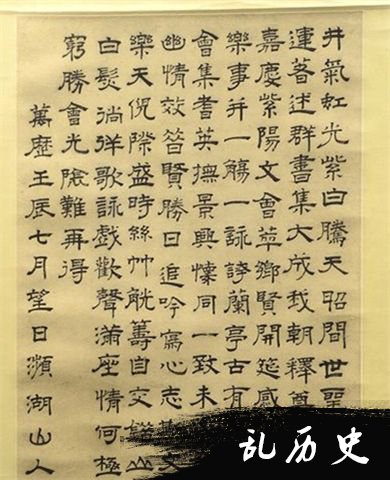 井氣虹光紫白騰天昭間世聖
運著述群書集大成我朝釋
嘉慶紫陽文會萃鄉賢開筵感
樂事并一觴一詠誇蘭亭古有
會集耆英撫景興懷同一致未
幽情效昔賢勝日追吟寫心志文
樂天倪際盛時絲竹觥籌自交錯山
白髮徜徉歌詠戲歡聲滿座情何極
窮勝會光陰難再得
萬歷壬辰七月望日瀕湖山人
乱历史